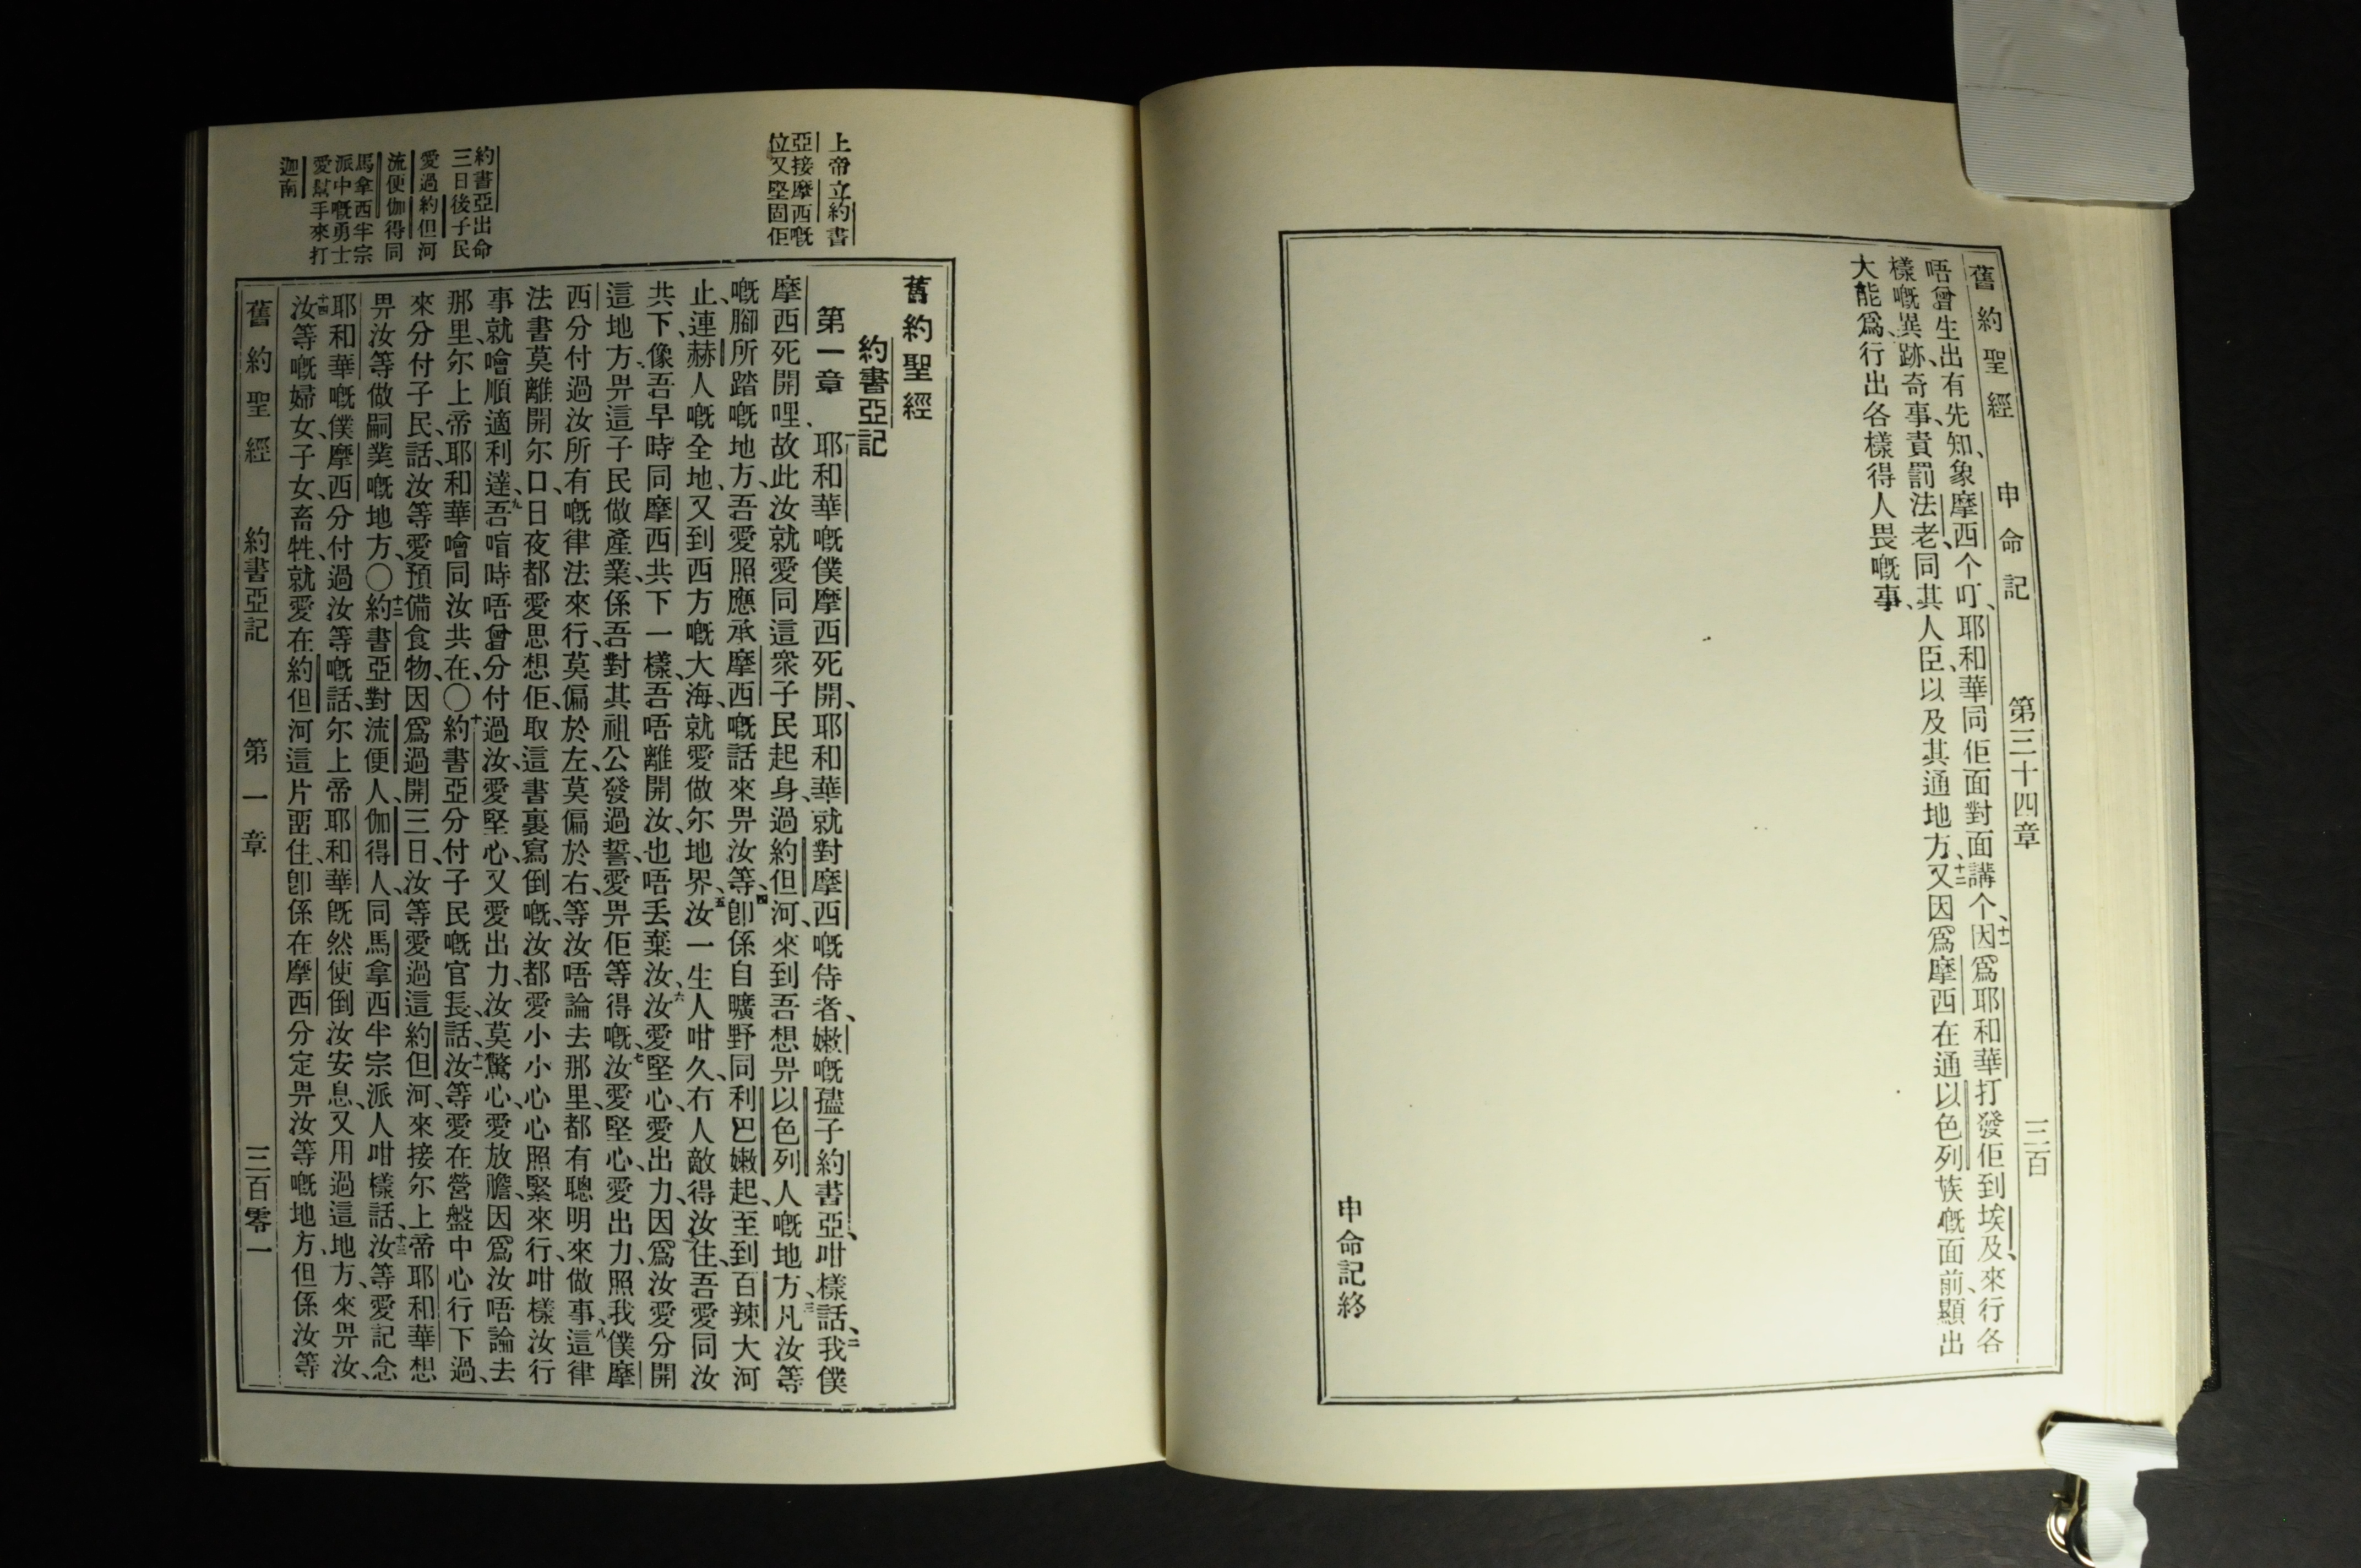 舊約聖經　申命記　第三十四章　三百
唔曾生出有先知、象摩西个叮、耶和華同佢面對面講个、十一因爲耶和華打發佢到埃及、來行各
樣嘅異跡、奇事、責罰法老、同其人臣、以及其通地方、十二又因爲摩西在通以色列族嘅面前、顯出
大能爲、行出各樣得人畏嘅事、
申命記終
上帝立約書
亞接摩西嘅
位又堅固佢
約書亞出命
三日後子民
愛過約但河
流便伽得同
馬拿西半宗
派中嘅勇士
愛幫手來打
迦南
舊約聖經
約書亞記
第一章　一耶和華嘅僕摩西死開、耶和華就對摩西嘅侍者、嫩嘅孻子約書亞、咁樣話、二我僕
摩西死開哩、故此汝就愛同這衆子民起身、過約但河、來到吾想畀以色列人嘅地方、三凡汝等
嘅腳所踏嘅地方、吾愛照應承摩西嘅話來畀汝等、四卽係自曠野同利巴嫩起、至到百辣大河
止、連赫人嘅全地、又到西方嘅大海、就愛做尔地界、五汝一生人咁久、冇人敵得汝住、吾愛同汝
共下、像吾早時同摩西共下一樣、吾唔離開汝、也唔丢棄汝、六汝愛堅心、愛出力、因爲汝愛分開
這地方畀這子民做產業、係吾對其祖公發過誓、愛畀佢等得嘅、七汝愛堅心、愛出力、照我僕摩
西分付過汝所有嘅律法來行、莫偏於左、莫偏於右、等汝唔論去那里、都有聰明來做事、八這律
法書莫離開尔口、日夜都愛思想佢、取這書裏寫倒嘅、汝都愛小小心心照緊來行、咁樣汝行
事就噲順適利達、九吾喑時唔曾分付過汝、愛堅心、又愛出力、汝莫驚心、愛放膽、因爲汝唔論去
那里、尔上帝耶和華噲同汝共在、〇十約書亞分付子民嘅官長、話、十一汝等愛在營盤中心行下過、
來分付子民、話、汝等愛預備食物、因爲過開三日、汝等愛過這約但河、來接尔上帝耶和華想
畀汝等做嗣業嘅地方、〇十二約書亞對流便人、伽得人、同馬拿西半宗派人咁樣話、十三汝等愛記念
耶和華嘅僕摩西分付過汝等嘅話、尔上帝耶和華旣然使倒汝安息、又用過這地方、來畀汝、
十四汝等嘅婦女、子女、畜牲、就愛在約但河這片畱住、卽係在摩西分定畀汝等嘅地方、但係汝等
舊約聖經　約書亞記　第一章　三百零一